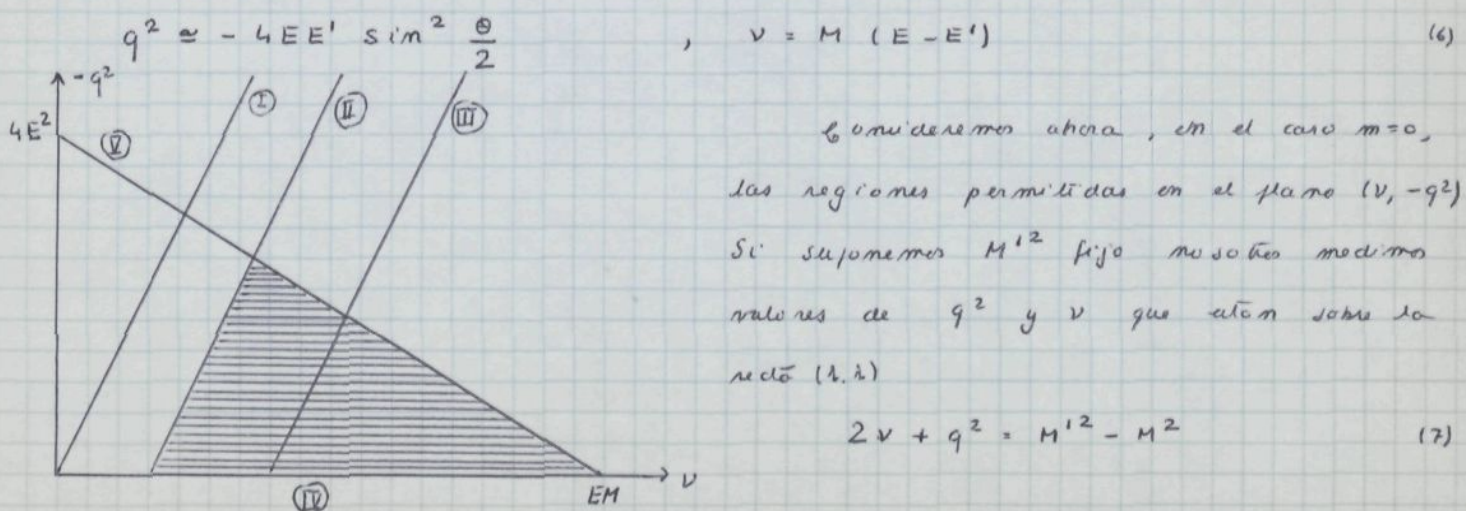 q² ≃ - 4EE' sin² θ/2 , ν = M (E - E') (6)
-q²
4E²
Ⅰ
Ⅱ
Ⅲ
Ⅴ
Ⅳ
EM
ν
Consideremos ahora, en el caso m=0,
las regiones permitidas en el plano (ν, -q²)
Si suponemos M'² fijo nosotros medimos
valores de q² y ν que están sobre la
recta (1.2)
2ν + q² = M'² - M² (7)